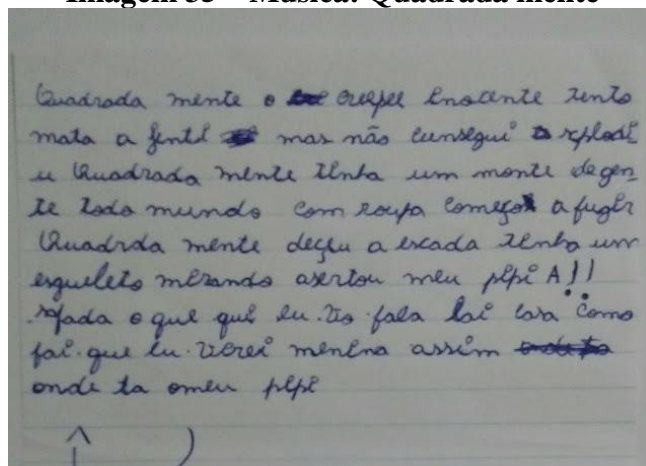 Imagem 35 – Música: Quadrada mente
Quadrada mente o creepee Enocente tento
mata a gente mas não cunsegui xplodi
u Quadrada mente tinha um monte de gen-
te todo mundo com roupa começo a fugir
Quadrda mente deceu a escada tinha um
esqueleto mirando asertou meu pipi A!!
o que que eu to fala lai casa como
fai que eu virei menina assim
onde ta omeu pipi